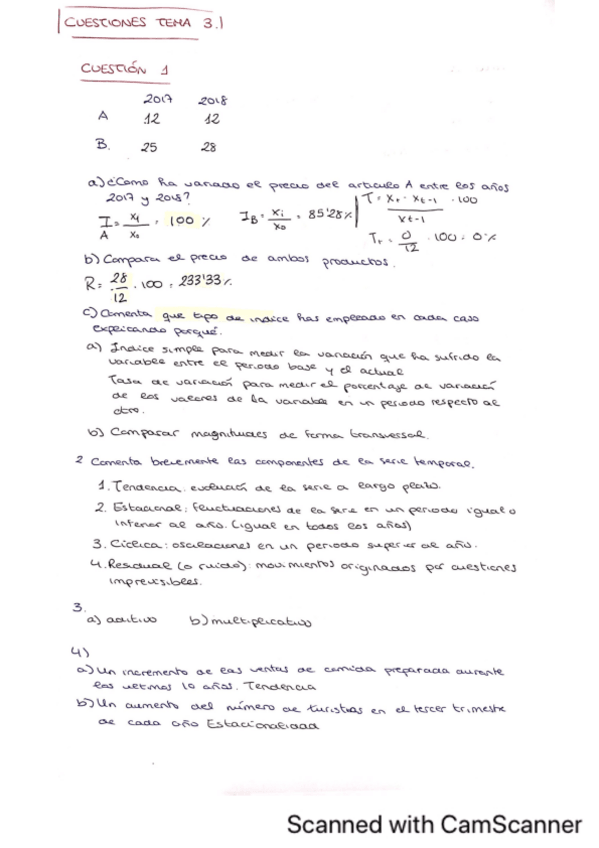 CUESTIONES TEMA 3.1
CUESTIÓN 1
2017 2018
A 12 12
B. 25 28
a) ¿Como ha variado el precio del articulo A entre los años
2017 y 2018?
I A = X1 / X0 = 100 %
IB = Xi / X0 = 85'28 %
T = Xt - Xt-1 / Xt-1 · 100
Tt = 0 / 12 · 100 = 0 %
b) Compara el precio de ambos productos.
R = 28 / 12 · 100 = 233'33 %
c) Comenta que tipo de indice has empleado en cada caso
explicando porqué.
a) Indice simple para medir la variación que ha sufrido la
variable entre el periodo base y el actual
Tasa de variación para medir el porcentaje de variación
de los valores de la variable en un periodo respecto al
otro.
b) Comparar magnitudes de forma transversal.
2 Comenta brevemente las componentes de la serie temporal.
1. Tendencia: evolución de la serie a largo plazo.
2. Estacional: fluctuaciones de la serie en un periodo igual o
inferior al año. (igual en todos los años)
3. Cíclica: oscilaciones en un periodo superior al año.
4. Residual (o ruido): movimientos originados por cuestiones
imprevisibles.
3.
a) aditivo b) multiplicativo
4)
a) Un incremento de las ventas de comida preparada durante
los ultimos 10 años. Tendencia
b) Un aumento del número de turistas en el tercer trimestre
de cada año Estacionalidad
Scanned with CamScanner